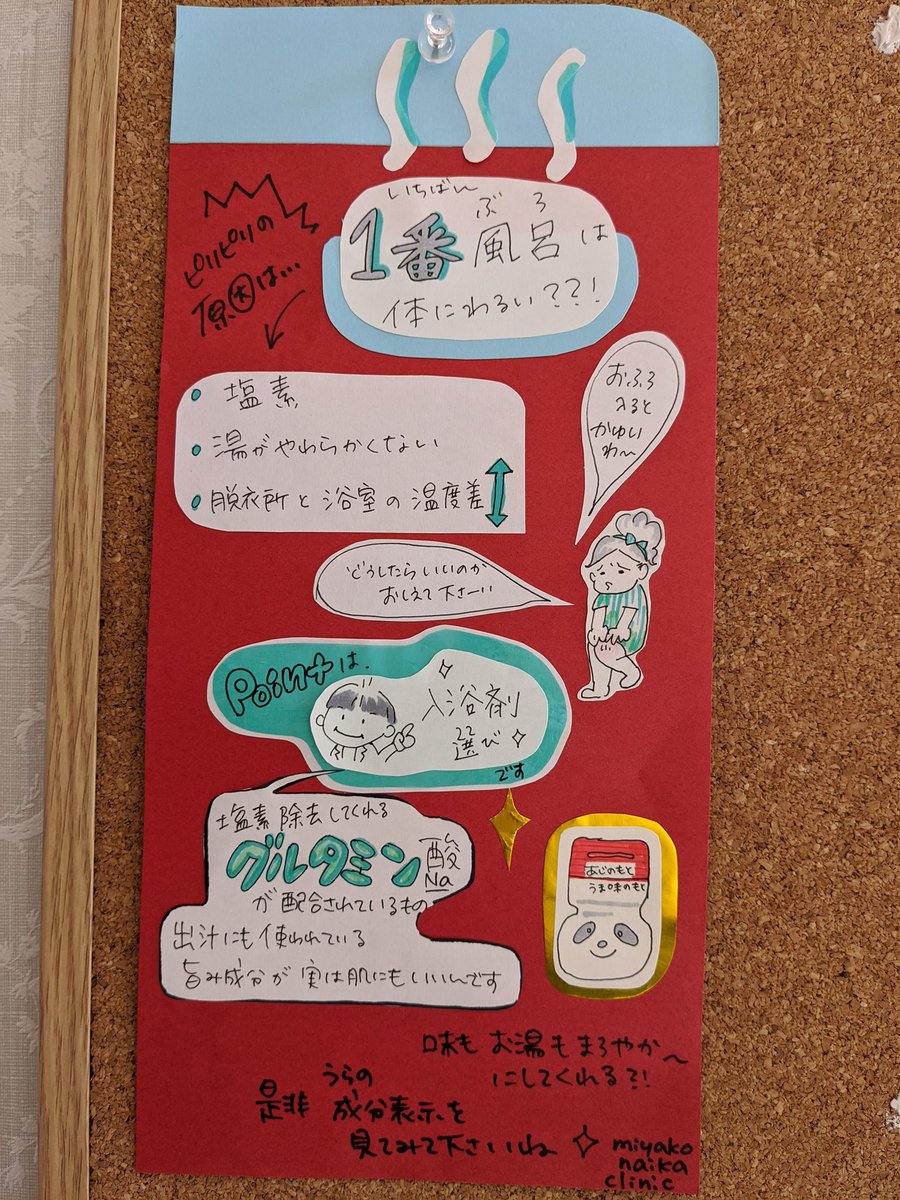 いちばん ぶろ
1番風呂は
体にわるい??!
ピリピリの
原因は…
• 塩素
• 湯がやわらかくない
• 脱衣所と浴室の温度差
おふろ
入ると
かゆい
わ〜
どうしたらいいのか
おしえて下さーい
Pointは、
入浴剤
選び
です
塩素除去してくれる
グルタミン酸Na
が配合されているもの
出汁にも使われている
旨み成分が実は肌にもいいんです
あじのもと
うま味のもと
味もお湯もまろやか〜
にしてくれる?!
是非うらの
成分表示を
見てみて下さいね
miyako
naika
clinic